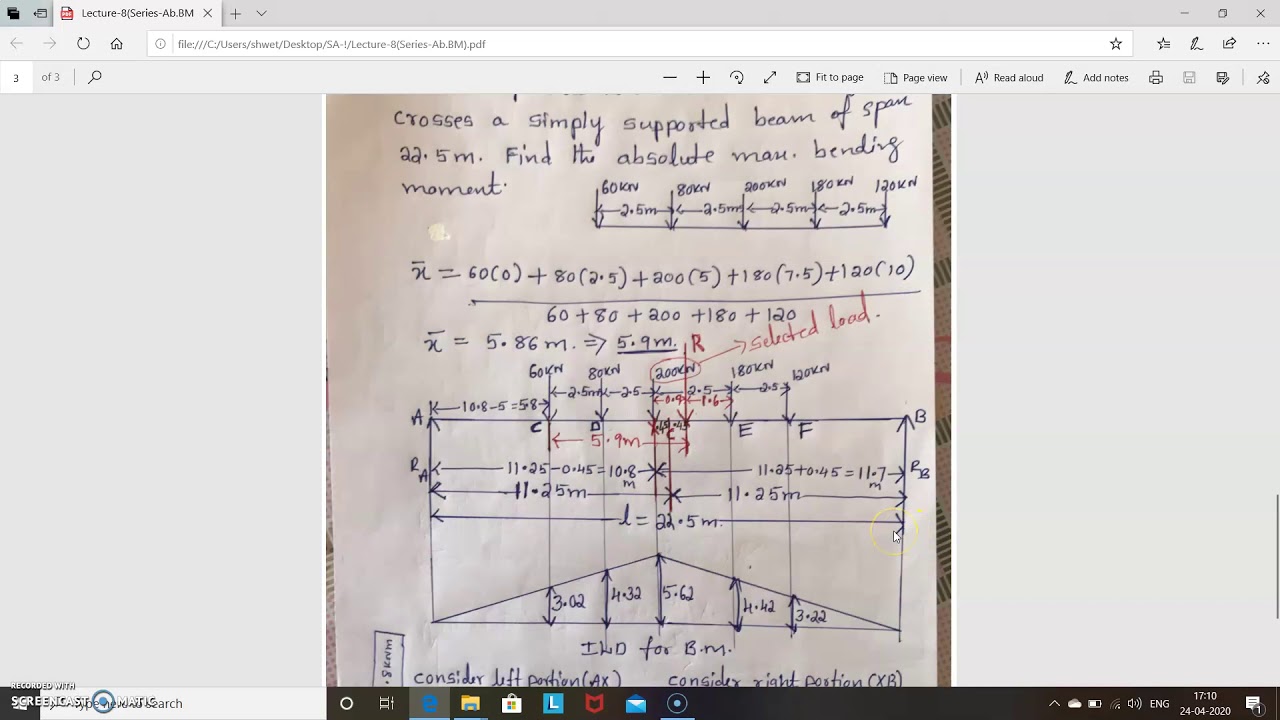 Lecture-8(Series-Ab.BM).pdf
file:///C:/Users/shwet/Desktop/SA-!/Lecture-8(Series-Ab.BM).pdf
3 of 3
Fit to page
Page view
Read aloud
Add notes
crosses a simply supported beam of span
22.5m. Find the absolute max. bending
moment.
60KN 80KN 200KN 180KN 120KN
2.5m 2.5m 2.5m 2.5m
x̄ = 60(0) + 80(2.5) + 200(5) + 180(7.5) + 120(10)
60 + 80 + 200 + 180 + 120
x̄ = 5.86 m. ⇒ 5.9m. R selected load.
60KN 80KN 200KN 180KN 120KN
2.5m 2.5 2.5 2.5
10.8-5=5.8 0.9 1.6
A B
C D E F
5.9m
RA 11.25-0.45=10.8 m 11.25+0.45=11.7 m RB
11.25m 11.25m
l = 22.5m.
3.02 4.32 5.62 4.42 3.22
ILD for B.M.
consider left portion(AX) consider right portion(XB)
RECORDED WITH
SCREENCAST MATIC
here to search
ENG
17:10
24-04-2020